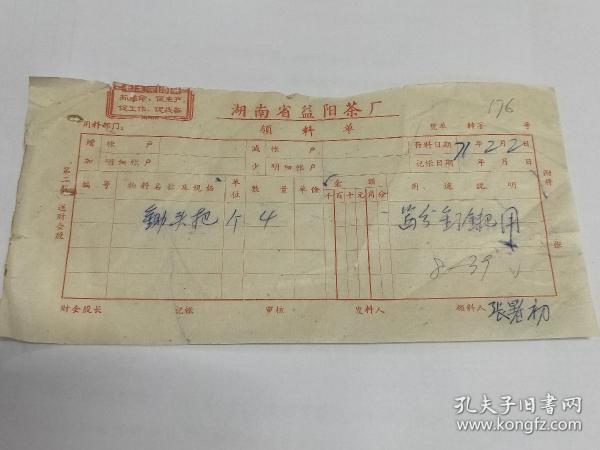 抓革命，促生产，
促工作，促战备
湖南省益阳茶厂
176
领料单
用料部门：
发单 转字 号
增帐户 减帐户 存料日期 71年2月2日
加明细帐户 少明细帐户 记帐日期 年 月 日
编号 物料名称及规格 单位 数量 单价 金额 千百十元角分 用途说明
锄头把 个 4
8-39
第二联 送财会股
附件 张
财会股长 记帐 审核 发料人 领料人 张
孔夫子旧书网
www.kongfz.com